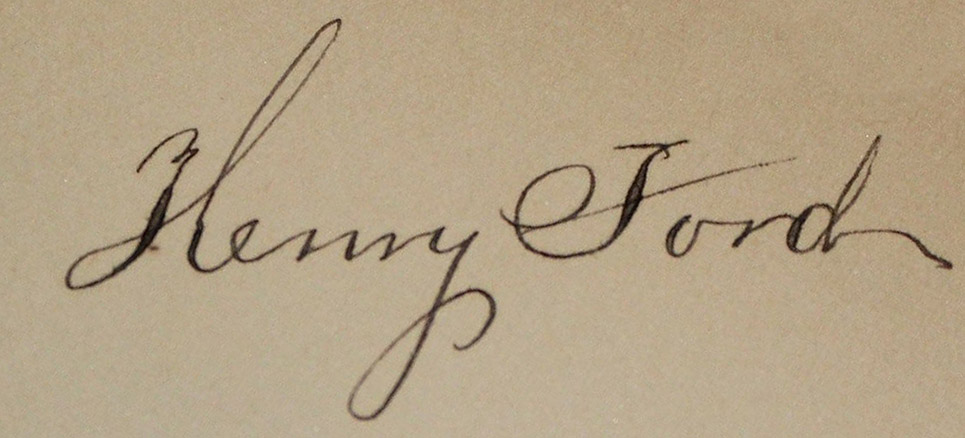 Henry Ford